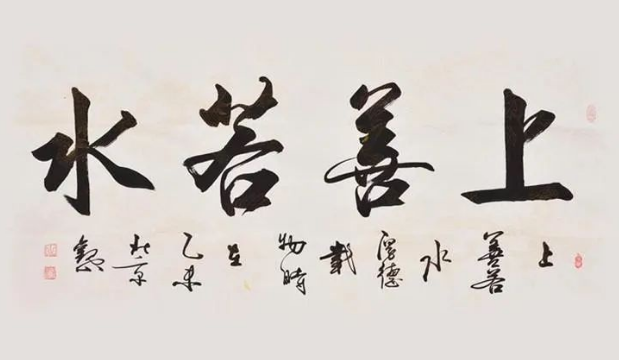 上善若水
上善若水厚德載物時在乙未京